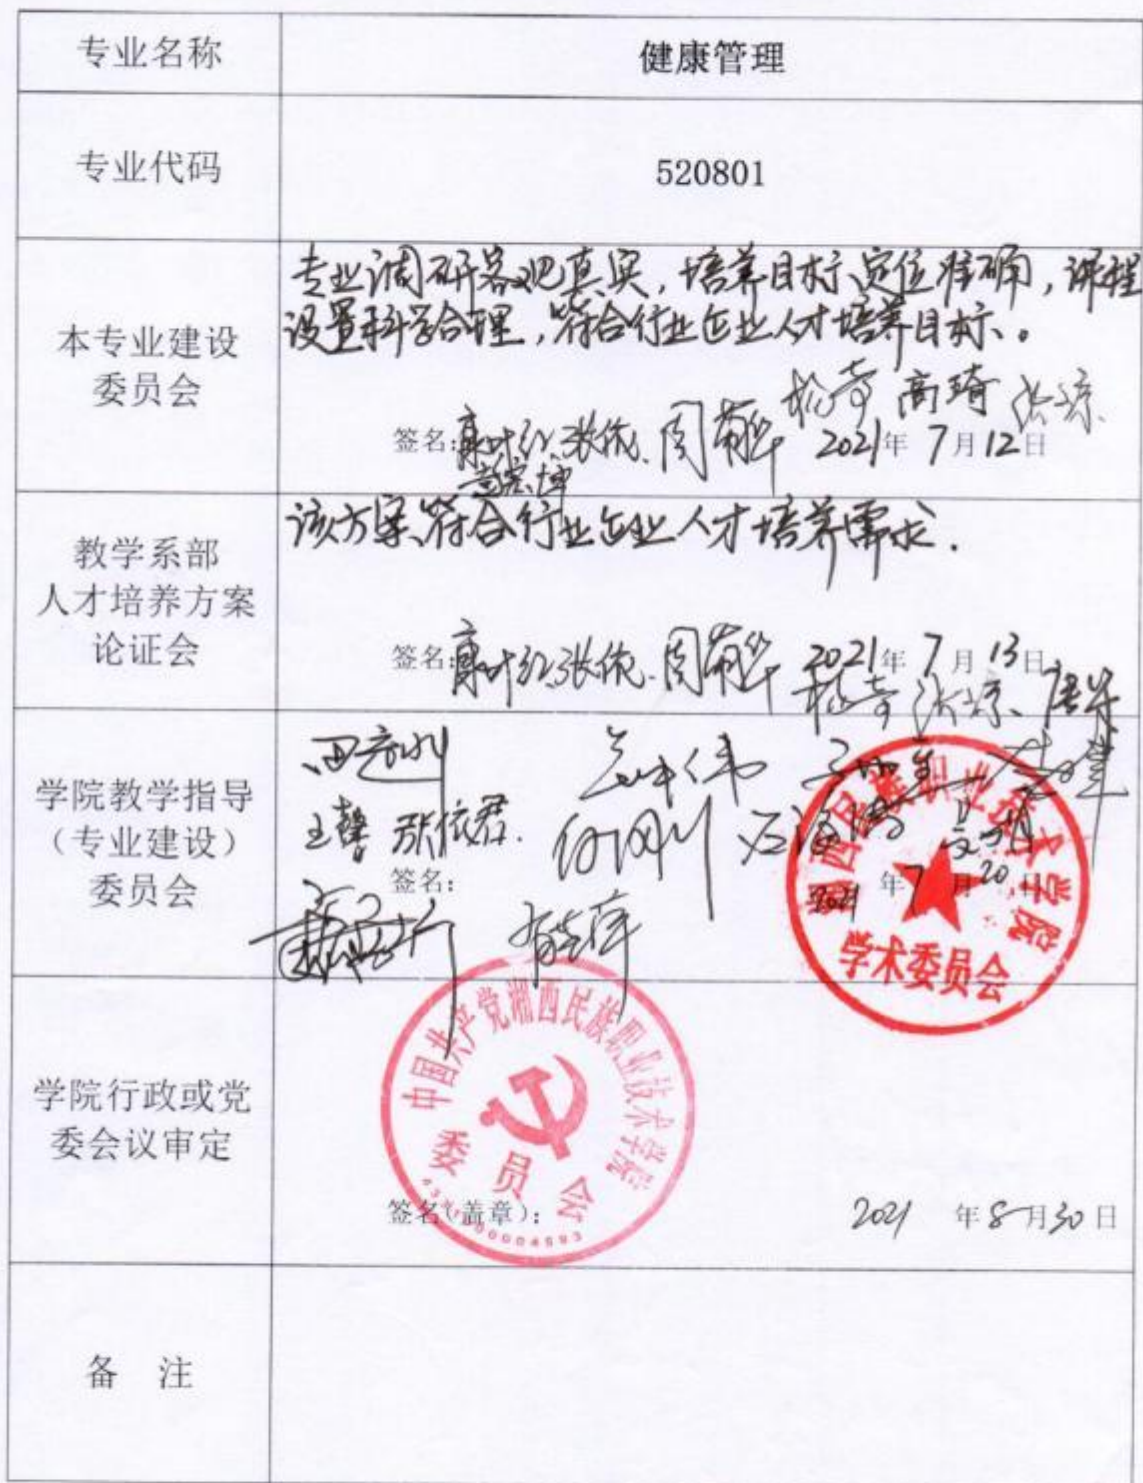 专业名称
健康管理
专业代码
520801
本专业建设
委员会
专业调研客观真实，培养目标定位准确，课程
设置科学合理，符合行业企业人才培养目标。
高琦
签名: 张依 周菊华 2021年7月12日
教学系部
人才培养方案
论证会
该方案符合行业企业人才培养需求.
签名: 张依 周菊华 2021年7月13日
学院教学指导
（专业建设）
委员会
王馨 张依君
签名:
2021年7月20日
湘西民族职业技术学院
学术委员会
学院行政或党
委会议审定
中国共产党湘西民族职业技术学院
委员会
签名(盖章):
2021 年8月30日
备 注